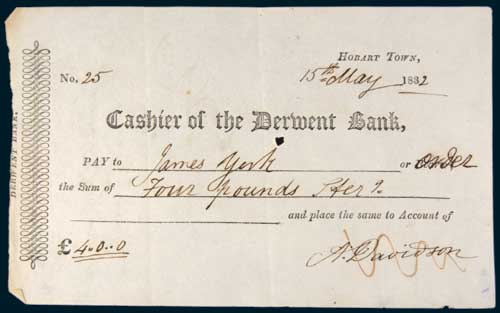 DERWENT BANK,
HOBART TOWN,
No. 25 15th May 1832
Cashier of the Derwent Bank,
PAY to James York or order
the Sum of Four pounds Ster g.
and place the same to Account of
£ 4..0..0
A. Davidson